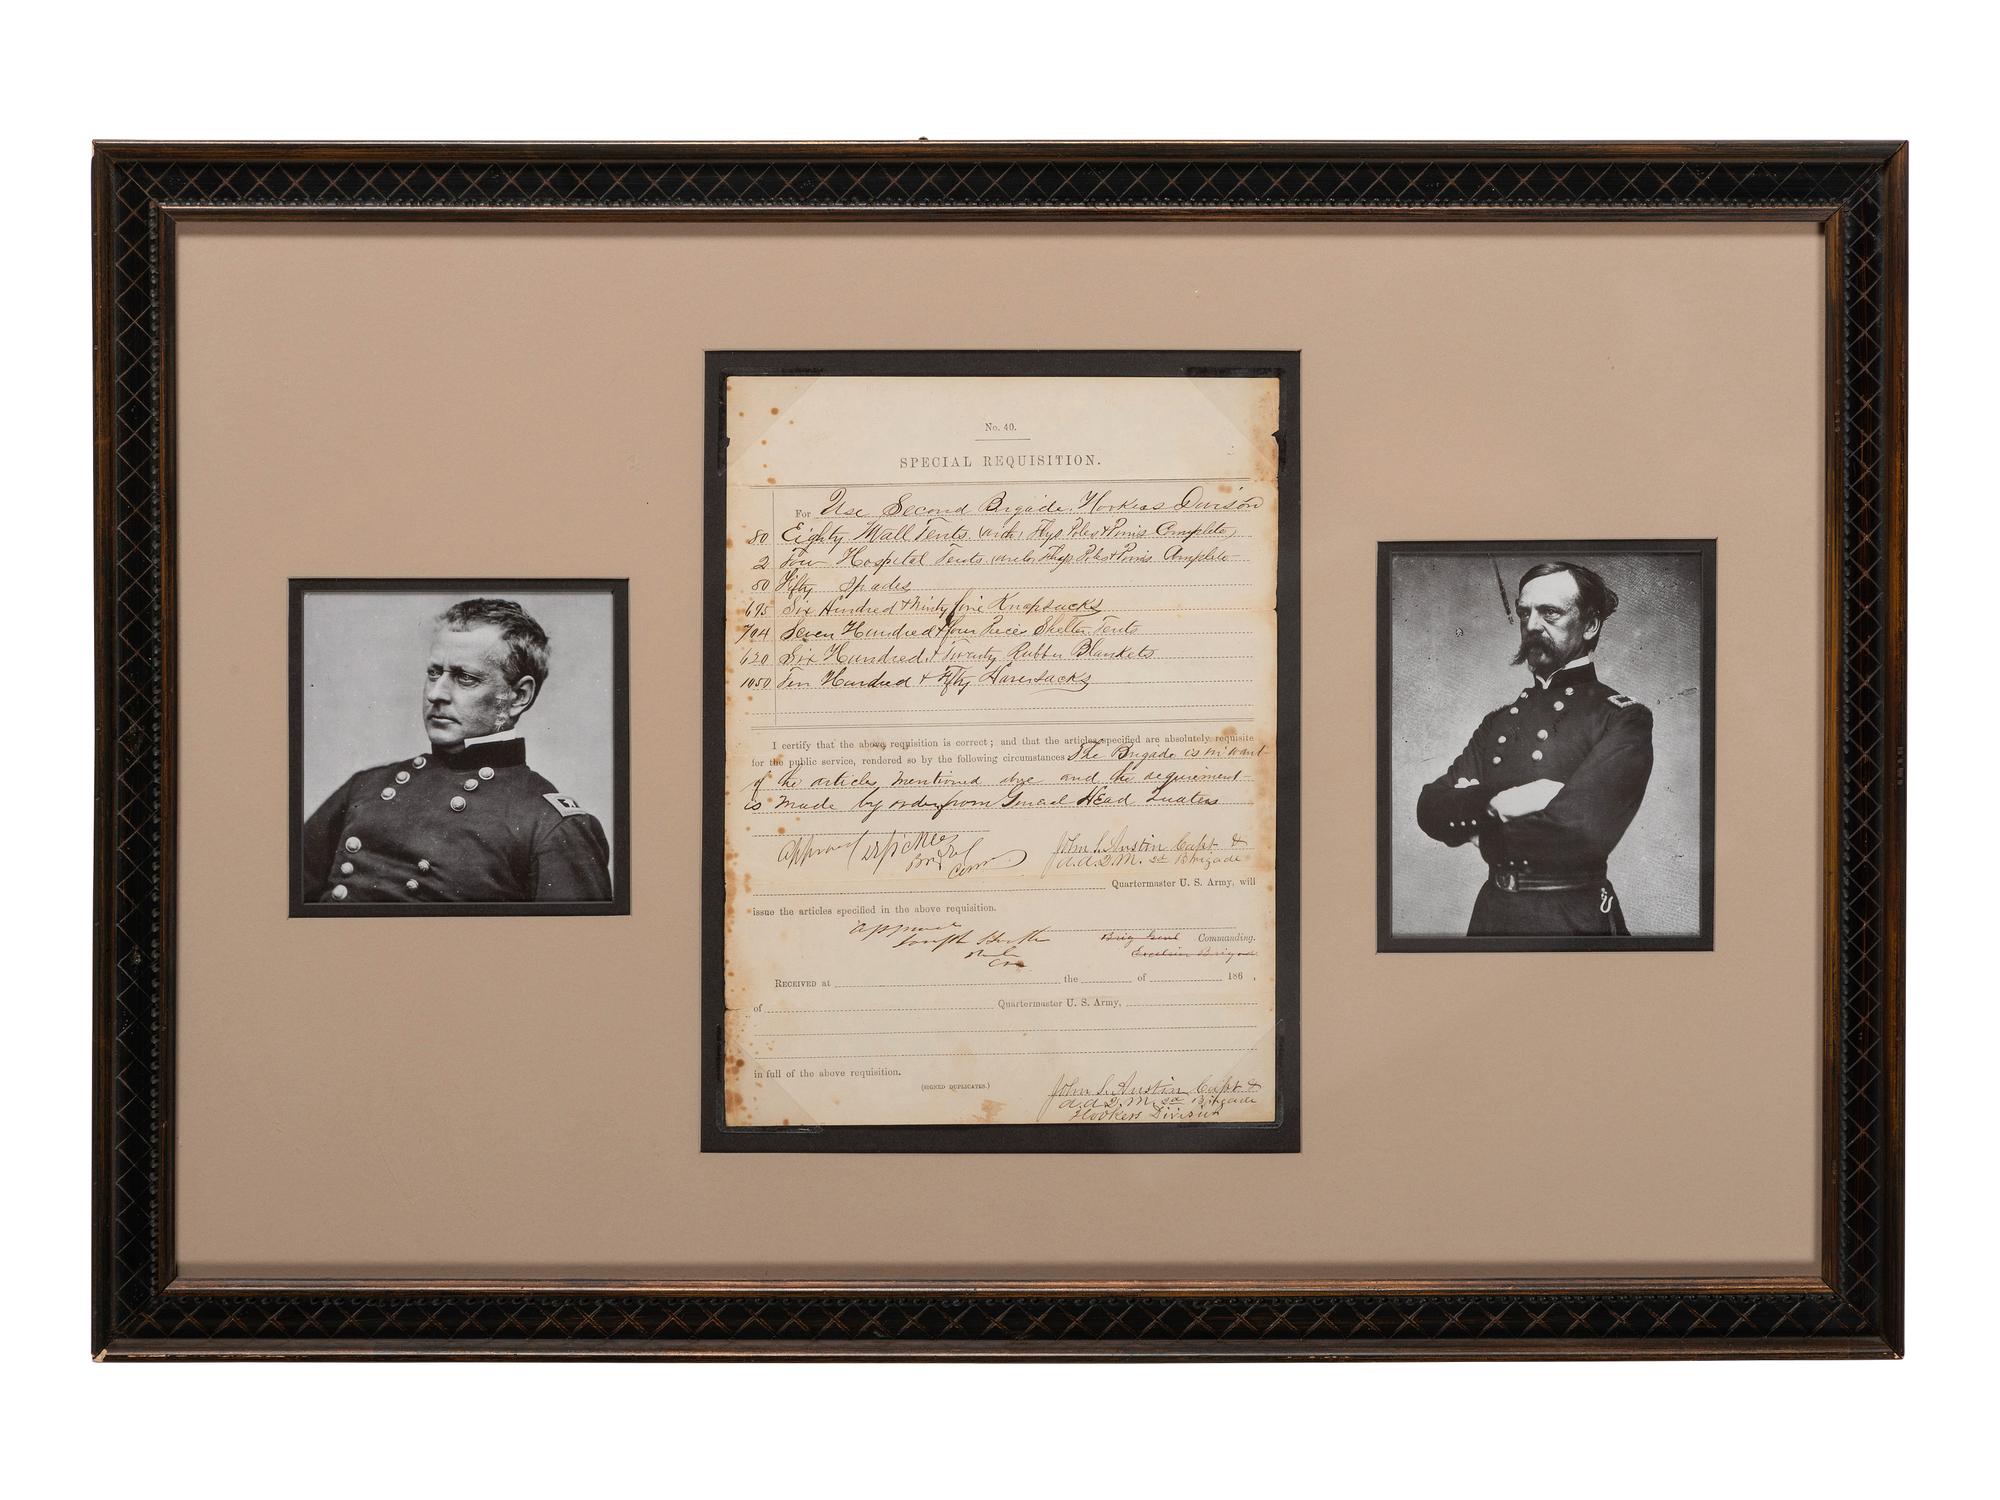 No. 40.
SPECIAL REQUISITION.
For Use Second Brigade Hookers Divison
80 Eighty Wall Tents (with Flys Poles & Pinns Complete)
2 Two Hospital Tents with Flys Poles & Pinns Complete
50 Fifty Spades
Six Hundred & Knapsacks
704 Seven Hundred & four Pieces Shelter Tents
620 Six Hundred & Twenty Rubber Blankets
1050 Ten Hundred & Fifty Haversacks
I certify that the above requisition is correct; and that the articles specified are absolutely requisite
for the public service, rendered so by the following circumstances The Brigade is in want
of the articles mentioned above and the requirement
is made by order from General Head Quaters
Approved D E Sickles John S. Austin Capt &
Brig Gnl A.A.Q.M. 2d Brigade
Com
Quartermaster U. S. Army, will
issue the articles specified in the above requisition.
Approved
Joseph Hooker Brig Genl Commanding.
Excelsior Brigade
RECEIVED at the of 186 ,
of Quartermaster U. S. Army,
in full of the above requisition.
(SIGNED DUPLICATES.)
John S. Austin Capt &
A.A.Q.M. 2d Brigade
Hookers Division